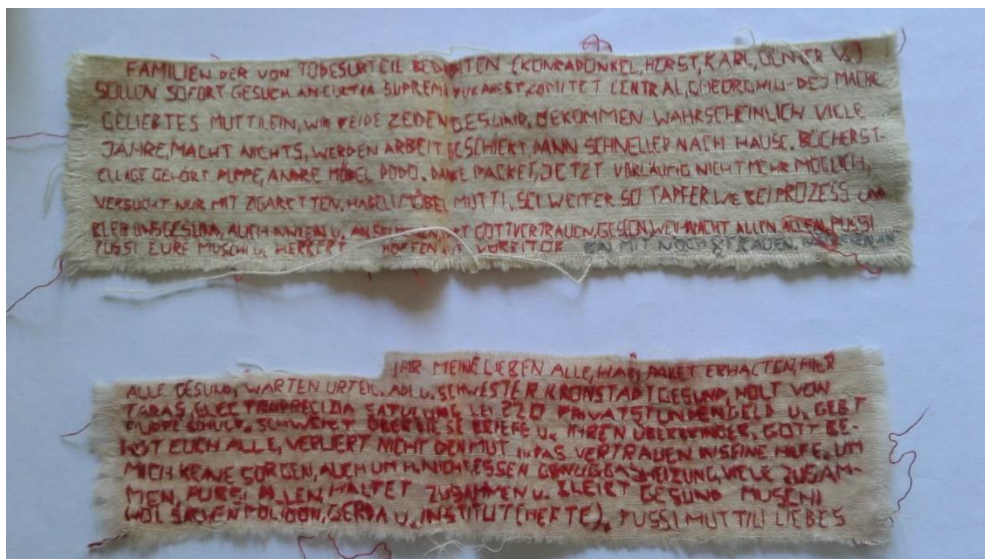 FAMILIEN DER VON TODESURTEIL (KONRADONKEL, HORST, KARL, U.)
SOLLEN SOFORT GESUCH AN CURTEA SUPREMA BUKAREST, COMITET CENTRAL, GHEORGHIU-DEJ MACHE
GELIEBTES MUTTILEIN, WIR BEIDE ZEIDEN GESUND, BEKOMMEN WAHRSCHEINLICH VIELE
JAHRE, MACHT NICHTS, WERDEN ARBEIT GESCHICKT DANN SCHNELLER NACH HAUSE. BÜCHERST-
ELLAGE GEHÖRT PUPPE, ANDRE MÖBEL DODO. DANKE PACKET, JETZT VORLÄUFIG NICHT MEHR MÖGLICH,
VERSUCHT NUR MIT ZIGARETTEN. MÖBEL MUTTI, SEI WEITER SO TAPFER WIE BEI PROZESS UND
BLEIB UNS GESUND, AUCH U. GOTTVERTRAUEN. ALLEN ALLEN PUSSI
PUSSI EURE MUSCHI U. HERBERT HOFFEN AUF VORBITOR BIN MIT NOCH 8 FRAUEN,
IHR MEINE LIEBEN ALLE, HAB PAKET ERHALTEN, HIER
ALLE GESUND, WARTEN URTEIL, ADI U. SCHWESTER KRONSTADT GESUND, HOLT VON
TARAS, ELECTROPRECIZIA SACULUNG LEI 220 PRIVATSTUNDENGELD U. GEBT
PUPPE SCHULD. SCHWEIGT ÜBER DIESE BRIEFE U. IHREN ÜBERBRINGER, GOTT BE-
HÜT EUCH ALLE, VERLIERT NICHT DEN MUT DAS VERTRAUEN IN SEINE HILFE. UM
MICH KEINE SORGEN, AUCH UM H. NICHT, ESSEN GENUG, GASHEIZUNG, VIELE ZUSAM-
MEN, PUSSI ALLEN, HALTET ZUSAMMEN U. BLEIBT GESUND MUSCHI
GERDA U. INSTITUT (HEFTE), PUSSI MUTTILI LIEBES